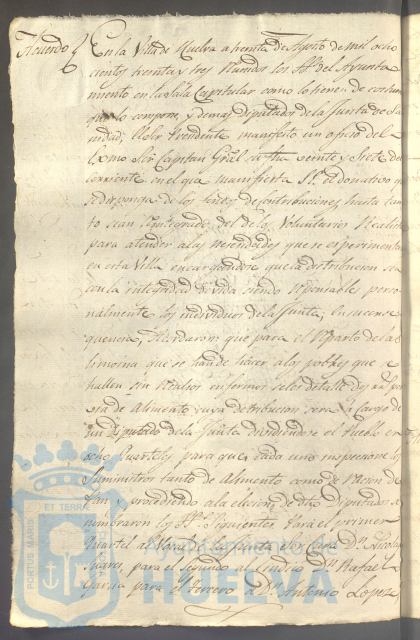 Acuerdo En la Villa de Huelva a treinta de Agosto de mil ocho
cientos treinta y tres Reunidos los SS. del Ayunta
miento en la Sala Capitular como lo tienen de costum
que lo compone, y demas Diputados de la Junta de Sa
nidad, el Señor Presidente manifestó un oficio del
Exmo Sor Capitan Gral su fha veinte y siete del
corriente en el que manifiesta S. E. el donativo
se disponga de los fondos de contribuciones hasta tan
to sean reintegrados del de los Voluntarios Realistas
para atender a las necesidades que se experimentan
en esta Villa encargandose que la distribucion sea
con la integridad devida siendo responsable perso
nalmente los individuos de la Junta; En su conse
quencia, Acordaron que para el Reparto de la
limosna que se ha de hacer a los pobres que se
hallen sin recursos enfermos se les detalle
de Alimento cuya distribucion sera a Cargo de
un Diputado de la Junta dividiendose el Pueblo en
ocho Quarteles para que cada uno inspeccione los
Suministros tanto de Alimento como de Racion de
Pan, y procediendo a la eleccion de dhos Diputados
nombraron los SS. Siguientes Para el primer
Quartel al Vocal de la Junta el Sor Cura Dn. Nicolas
Suares, para el segundo al Sindico Dn. Rafael
Garcia para el tercero a Dn. Antonio Lopez
PORTUS MARIS ET TERRAE
Ayuntamiento de
HUELVA